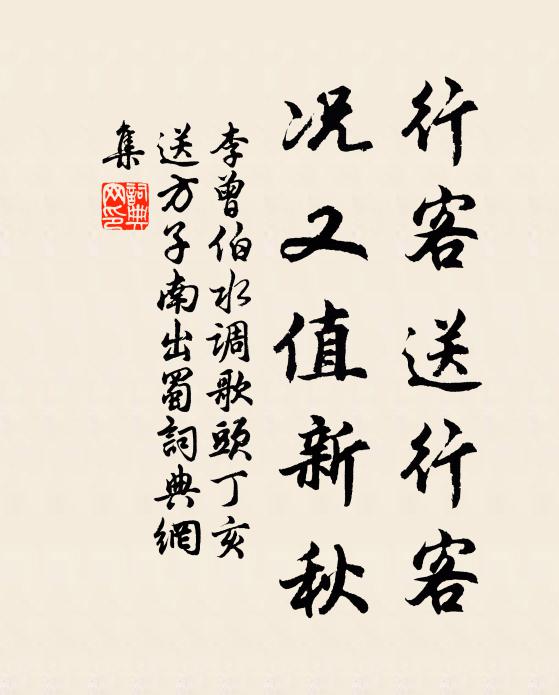 行客送行客
况又值新秋
李曾伯水调歌頭丁亥
送方子南出蜀詞典網
集
詞典
网印